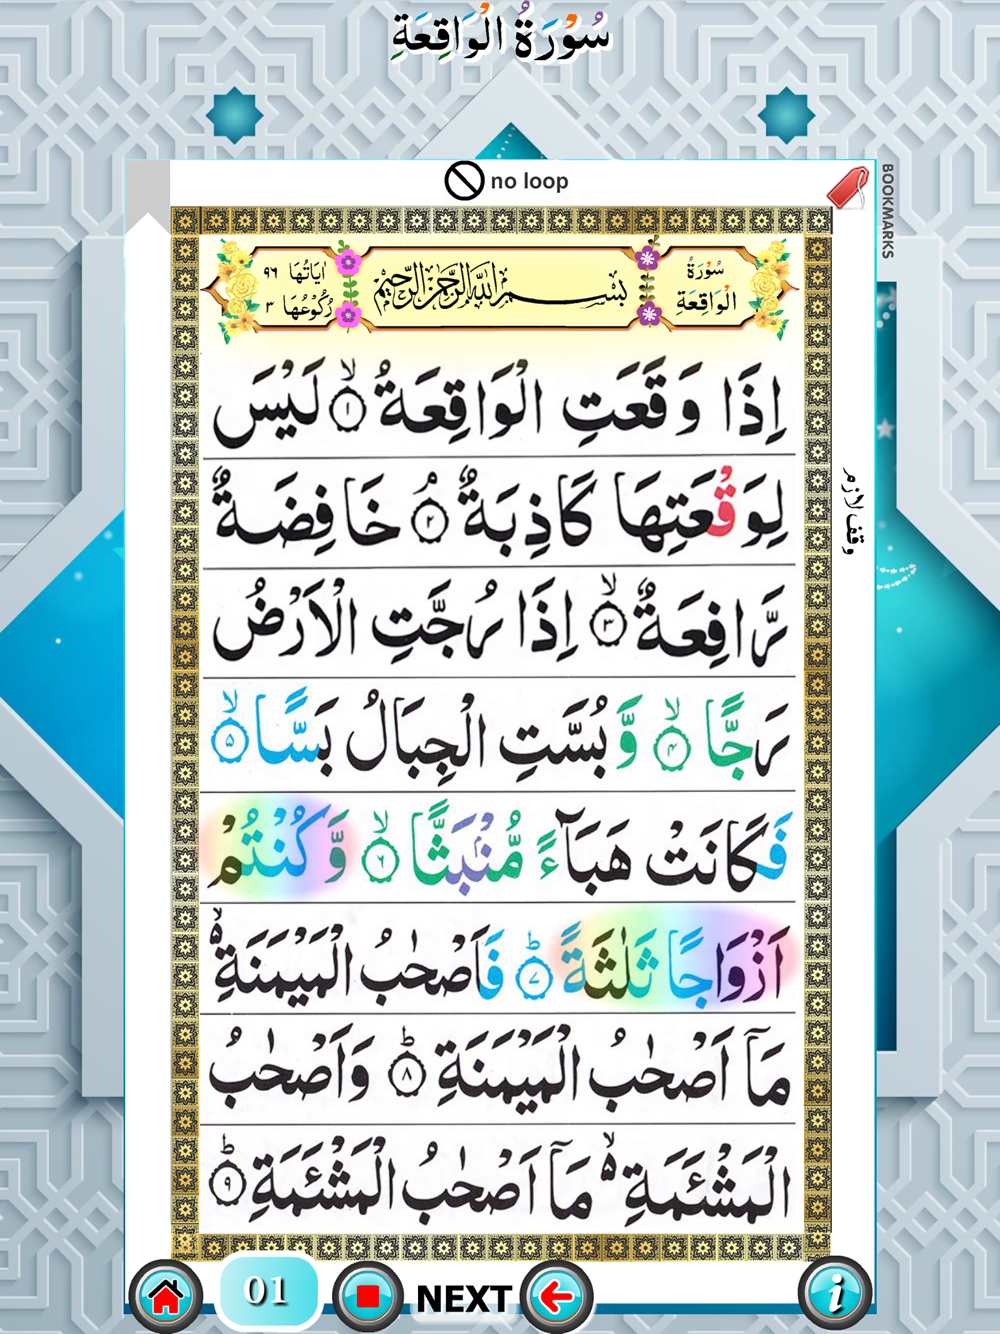 سُوْرَةُ الْوَاقِعَةِ
no loop
BOOKMARKS
سُوْرَةُ الْوَاقِعَةِ
بِسْمِ اللّٰهِ الرَّحْمٰنِ الرَّحِيْمِ
اٰيَاتُهَا ٩٦
رُكُوْعُهَا ٣
اِذَا وَقَعَتِ الْوَاقِعَةُ ۙ‏﴿۱﴾ لَيْسَ
لِوَقْعَتِهَا كَاذِبَةٌ ۘ‏﴿۲﴾ خَافِضَةٌ
وقف لازم
رَّافِعَةٌ ۙ‏﴿۳﴾ اِذَا رُجَّتِ الْاَرْضُ
رَجًّا ۙ‏﴿۴﴾ وَّ بُسَّتِ الْجِبَالُ بَسًّا ۙ‏﴿۵﴾
فَكَانَتْ هَبَآءً مُّنْۢبَثًّا ۙ‏﴿۶﴾ وَّكُنْتُمْ
اَزْوَاجًا ثَلٰثَةً ؕ‏﴿۷﴾ فَاَصْحٰبُ الْمَيْمَنَةِ ۙ۬
مَاۤ اَصْحٰبُ الْمَيْمَنَةِ ؕ‏﴿۸﴾ وَاَصْحٰبُ
الْمَشْئَمَةِ ۙ۬ مَاۤ اَصْحٰبُ الْمَشْئَمَةِ ؕ‏﴿۹﴾
01
NEXT
i